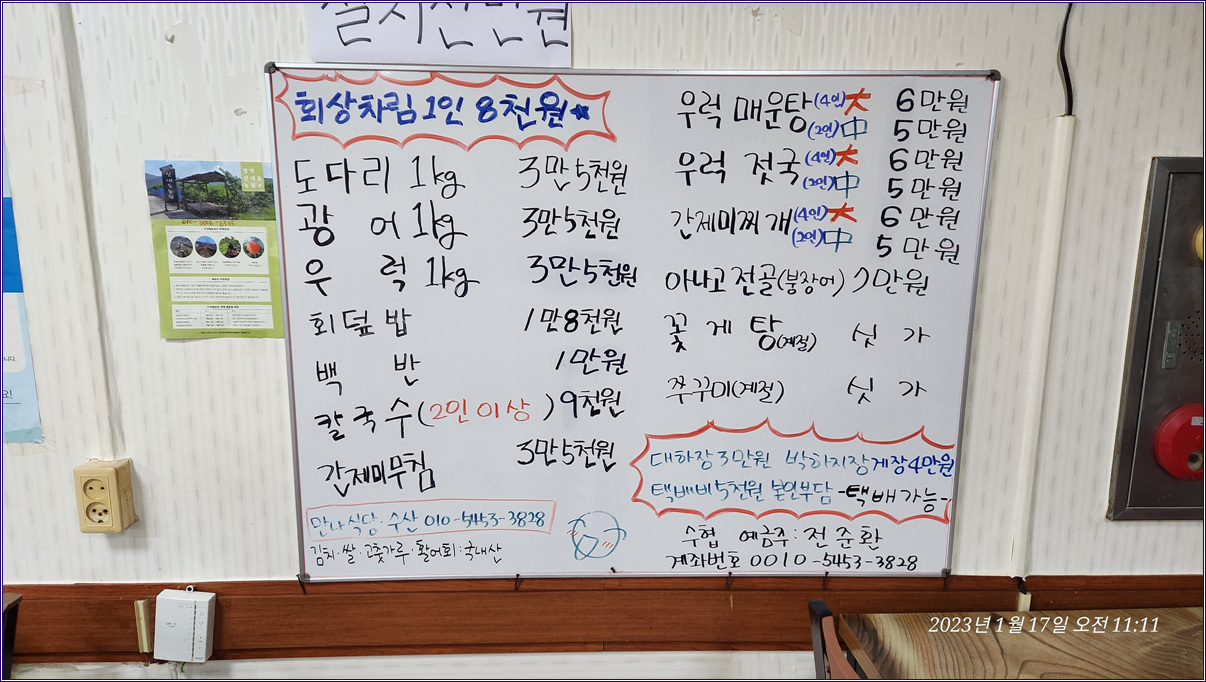 회상차림 1인 8천원★
도다리 1kg 3만5천원
광 어 1kg 3만5천원
우 럭 1kg 3만5천원
회덮밥 1만8천원
백 반 1만원
칼국수(2인이상) 9천원
간제미무침 3만5천원
만나식당·수산 010-5453-3828
김치·쌀·고춧가루·활어회:국내산
우럭 매운탕 (4인)大 6만원
(2인)中 5만원
우럭 젓국 (4인)大 6만원
(2인)中 5만원
간제미찌개 (4인)大 6만원
(2인)中 5만원
아나고전골(붕장어) 7만원
꽃게탕(계절) 싯 가
쭈꾸미(계절) 싯 가
대하장3만원 박하지장게장4만원
택배비5천원 본인부담 -택배가능-
수협 예금주:전준환
계좌번호 0010-5453-3828
2023년 1월 17일 오전 11:11